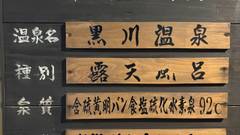 温泉名 黒川温泉
種別 露天風呂
泉質 含硫黄明バン食塩硫化水素泉92℃